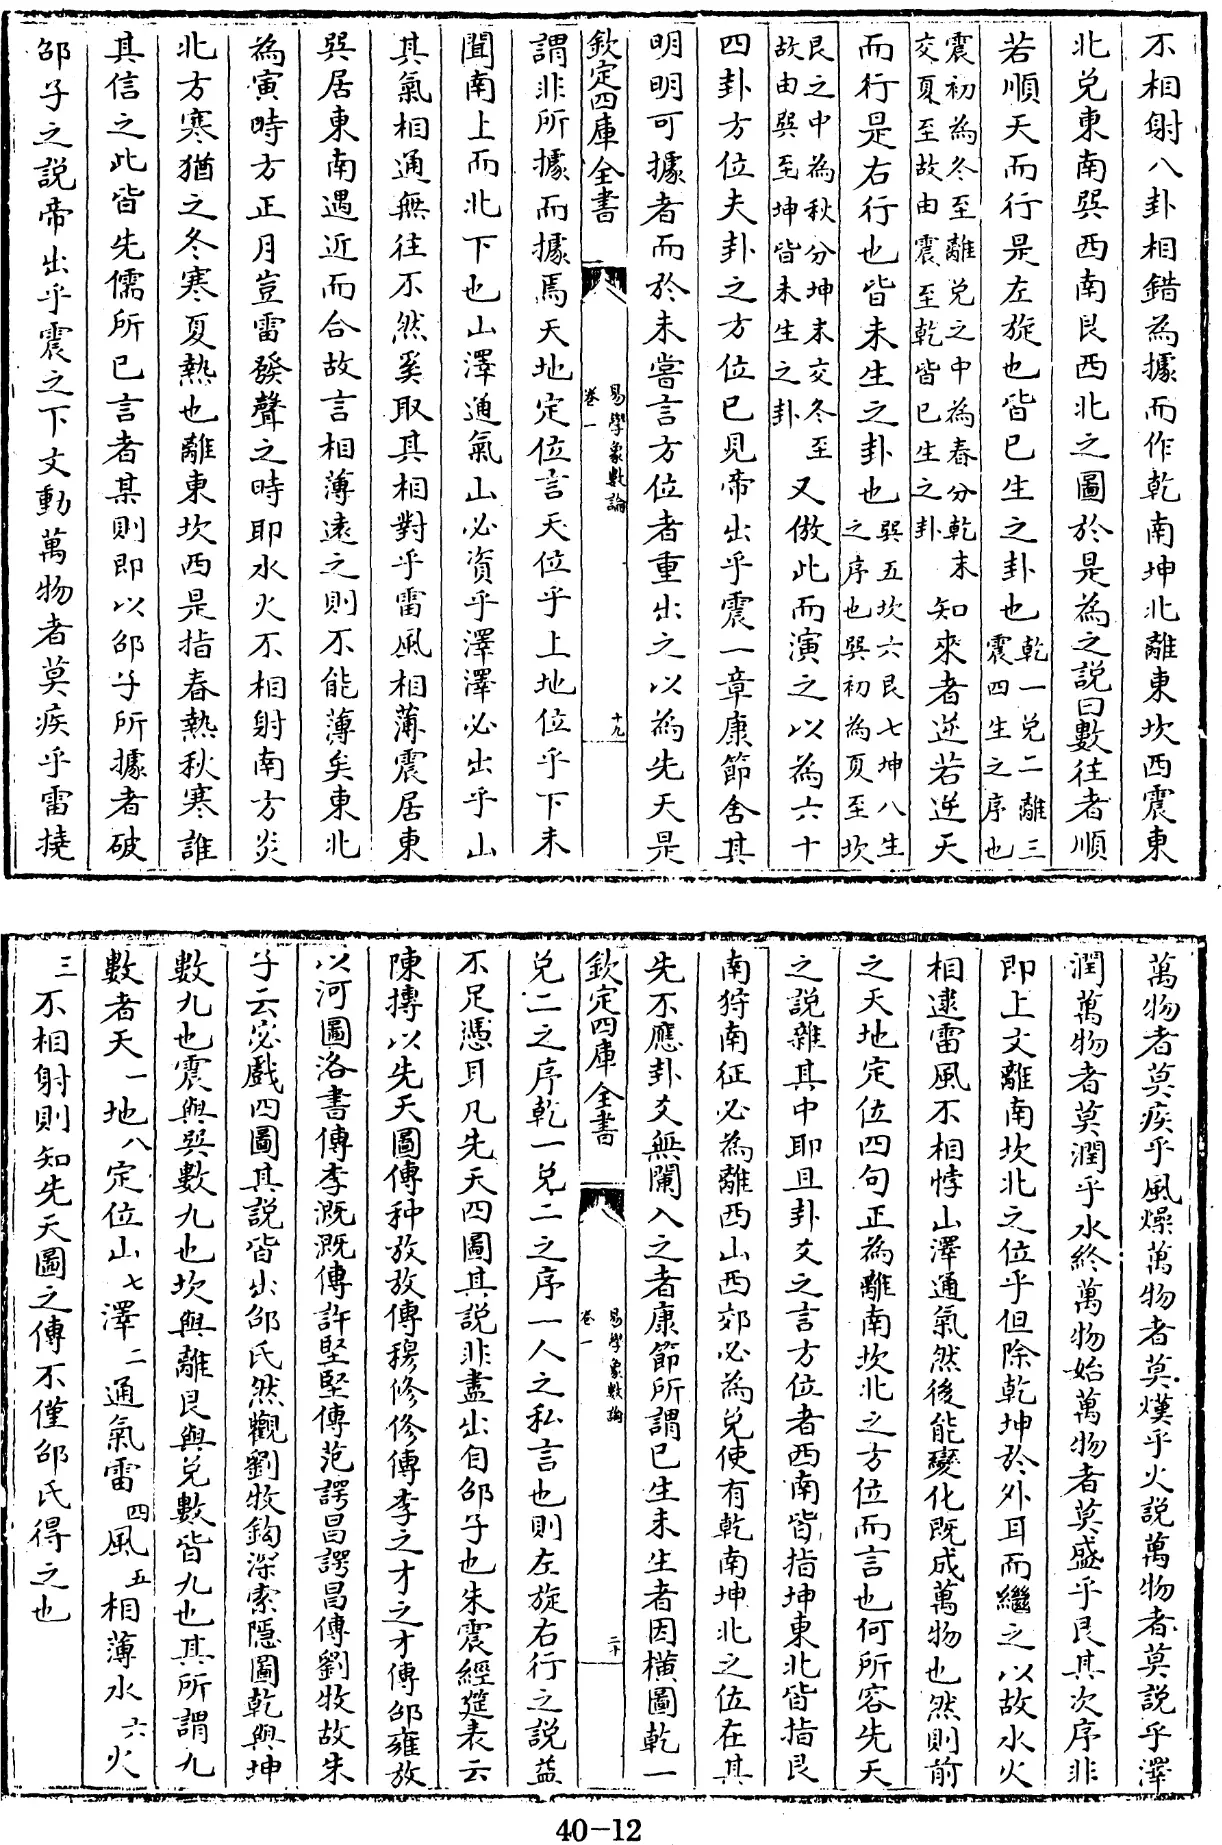 不相射八卦相錯為據而作乾南坤北離東坎西震東
北兑東南巽西南艮西北之圖於是為之説曰數往者順
若順天而行是左旋也皆已生之卦也乾一兑二離三
震四生之序也
震初為冬至離兑之中為春分乾末
交夏至故由震至乾皆已生之卦知來者逆若逆天
而行是右行也皆未生之卦也巽五坎六艮七坤八生
之序也巽初為夏至坎
艮之中為秋分坤末交冬至
故由巽至坤皆未生之卦又倣此而演之以為六十
四卦方位夫卦之方位已見帝出乎震一章康節舍其
明明可據者而於未嘗言方位者重出之以為先天是
欽定四庫全書
易學象數論
卷一
十九
謂非所據而據焉天地定位言天位乎上地位乎下未
聞南上而北下也山澤通氣山必資乎澤澤必出乎山
其氣相通無往不然奚取其相對乎雷風相薄震居東
巽居東南遇近而合故言相薄遠之則不能薄矣東北
為寅時方正月豈雷發聲之時耶水火不相射南方炎
北方寒猶之冬寒夏熱也離東坎西是指春熱秋寒誰
其信之此皆先儒所已言者某則即以邵子所據者破
邵子之説帝出乎震之下文動萬物者莫疾乎雷撓
萬物者莫疾乎風燥萬物者莫熯乎火説萬物者莫説乎澤
潤萬物者莫潤乎水終萬物始萬物者莫盛乎艮其次序非
即上文離南坎北之位乎但除乾坤於外耳而繼之以故水火
相逮雷風不相悖山澤通氣然後能變化既成萬物也然則前
之天地定位四句正為離南坎北之方位而言也何所容先天
之説雜其中耶且卦爻之言方位者西南皆指坤東北皆指艮
南狩南征必為離西山西郊必為兑使有乾南坤北之位在其
先不應卦爻無闌入之者康節所謂已生未生者因横圖乾一
欽定四庫全書
易學象數論
卷一
二十
兑二之序乾一兑二之序一人之私言也則左旋右行之説益
不足憑耳凡先天四圖其説非盡出自邵子也朱震經筵表云
陳摶以先天圖傳种放放傳穆修修傳李之才之才傳邵雍放
以河圖洛書傳李溉溉傳許堅堅傳范諤昌諤昌傳劉牧故朱
子云宓戲四圖其説皆出邵氏然觀劉牧鈎深索隱圖乾與坤
數九也震與巽數九也坎與離艮與兑數皆九也其所謂九
數者天一地八定位山七澤二通氣雷四風五相薄水六火
三不相射則知先天圖之傳不僅邵氏得之也
40-12